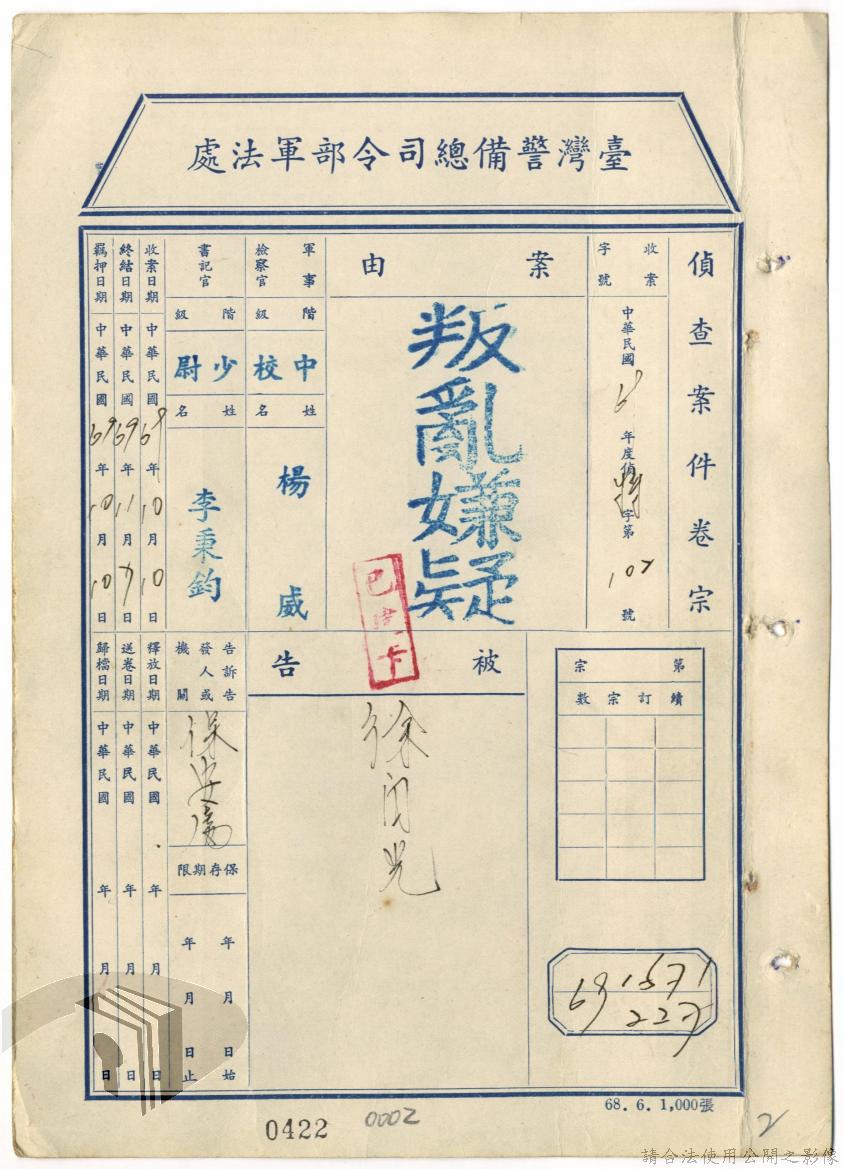 臺灣警備總司令部軍法處
偵查案件卷宗
收案字號
中華民國69年度偵特字第107號
案由
叛亂嫌疑
軍事檢察官
階級
中校
姓名
楊威
書記官
階級
少尉
姓名
李秉鈞
收案日期 中華民國69年10月10日
終結日期 中華民國69年11月7日
羈押日期 中華民國69年10月10日
第宗
續訂宗數
被告
徐
光
告訴告發人或機關
保安處
保存期限
年月日始
年月日止
釋放日期 中華民國 年 月 日
送卷日期 中華民國 年 月 日
歸檔日期 中華民國 年 月 日
已
卡
69 1571
227
68.6.1,000張
0422
0002
2
請合法使用公開之影像